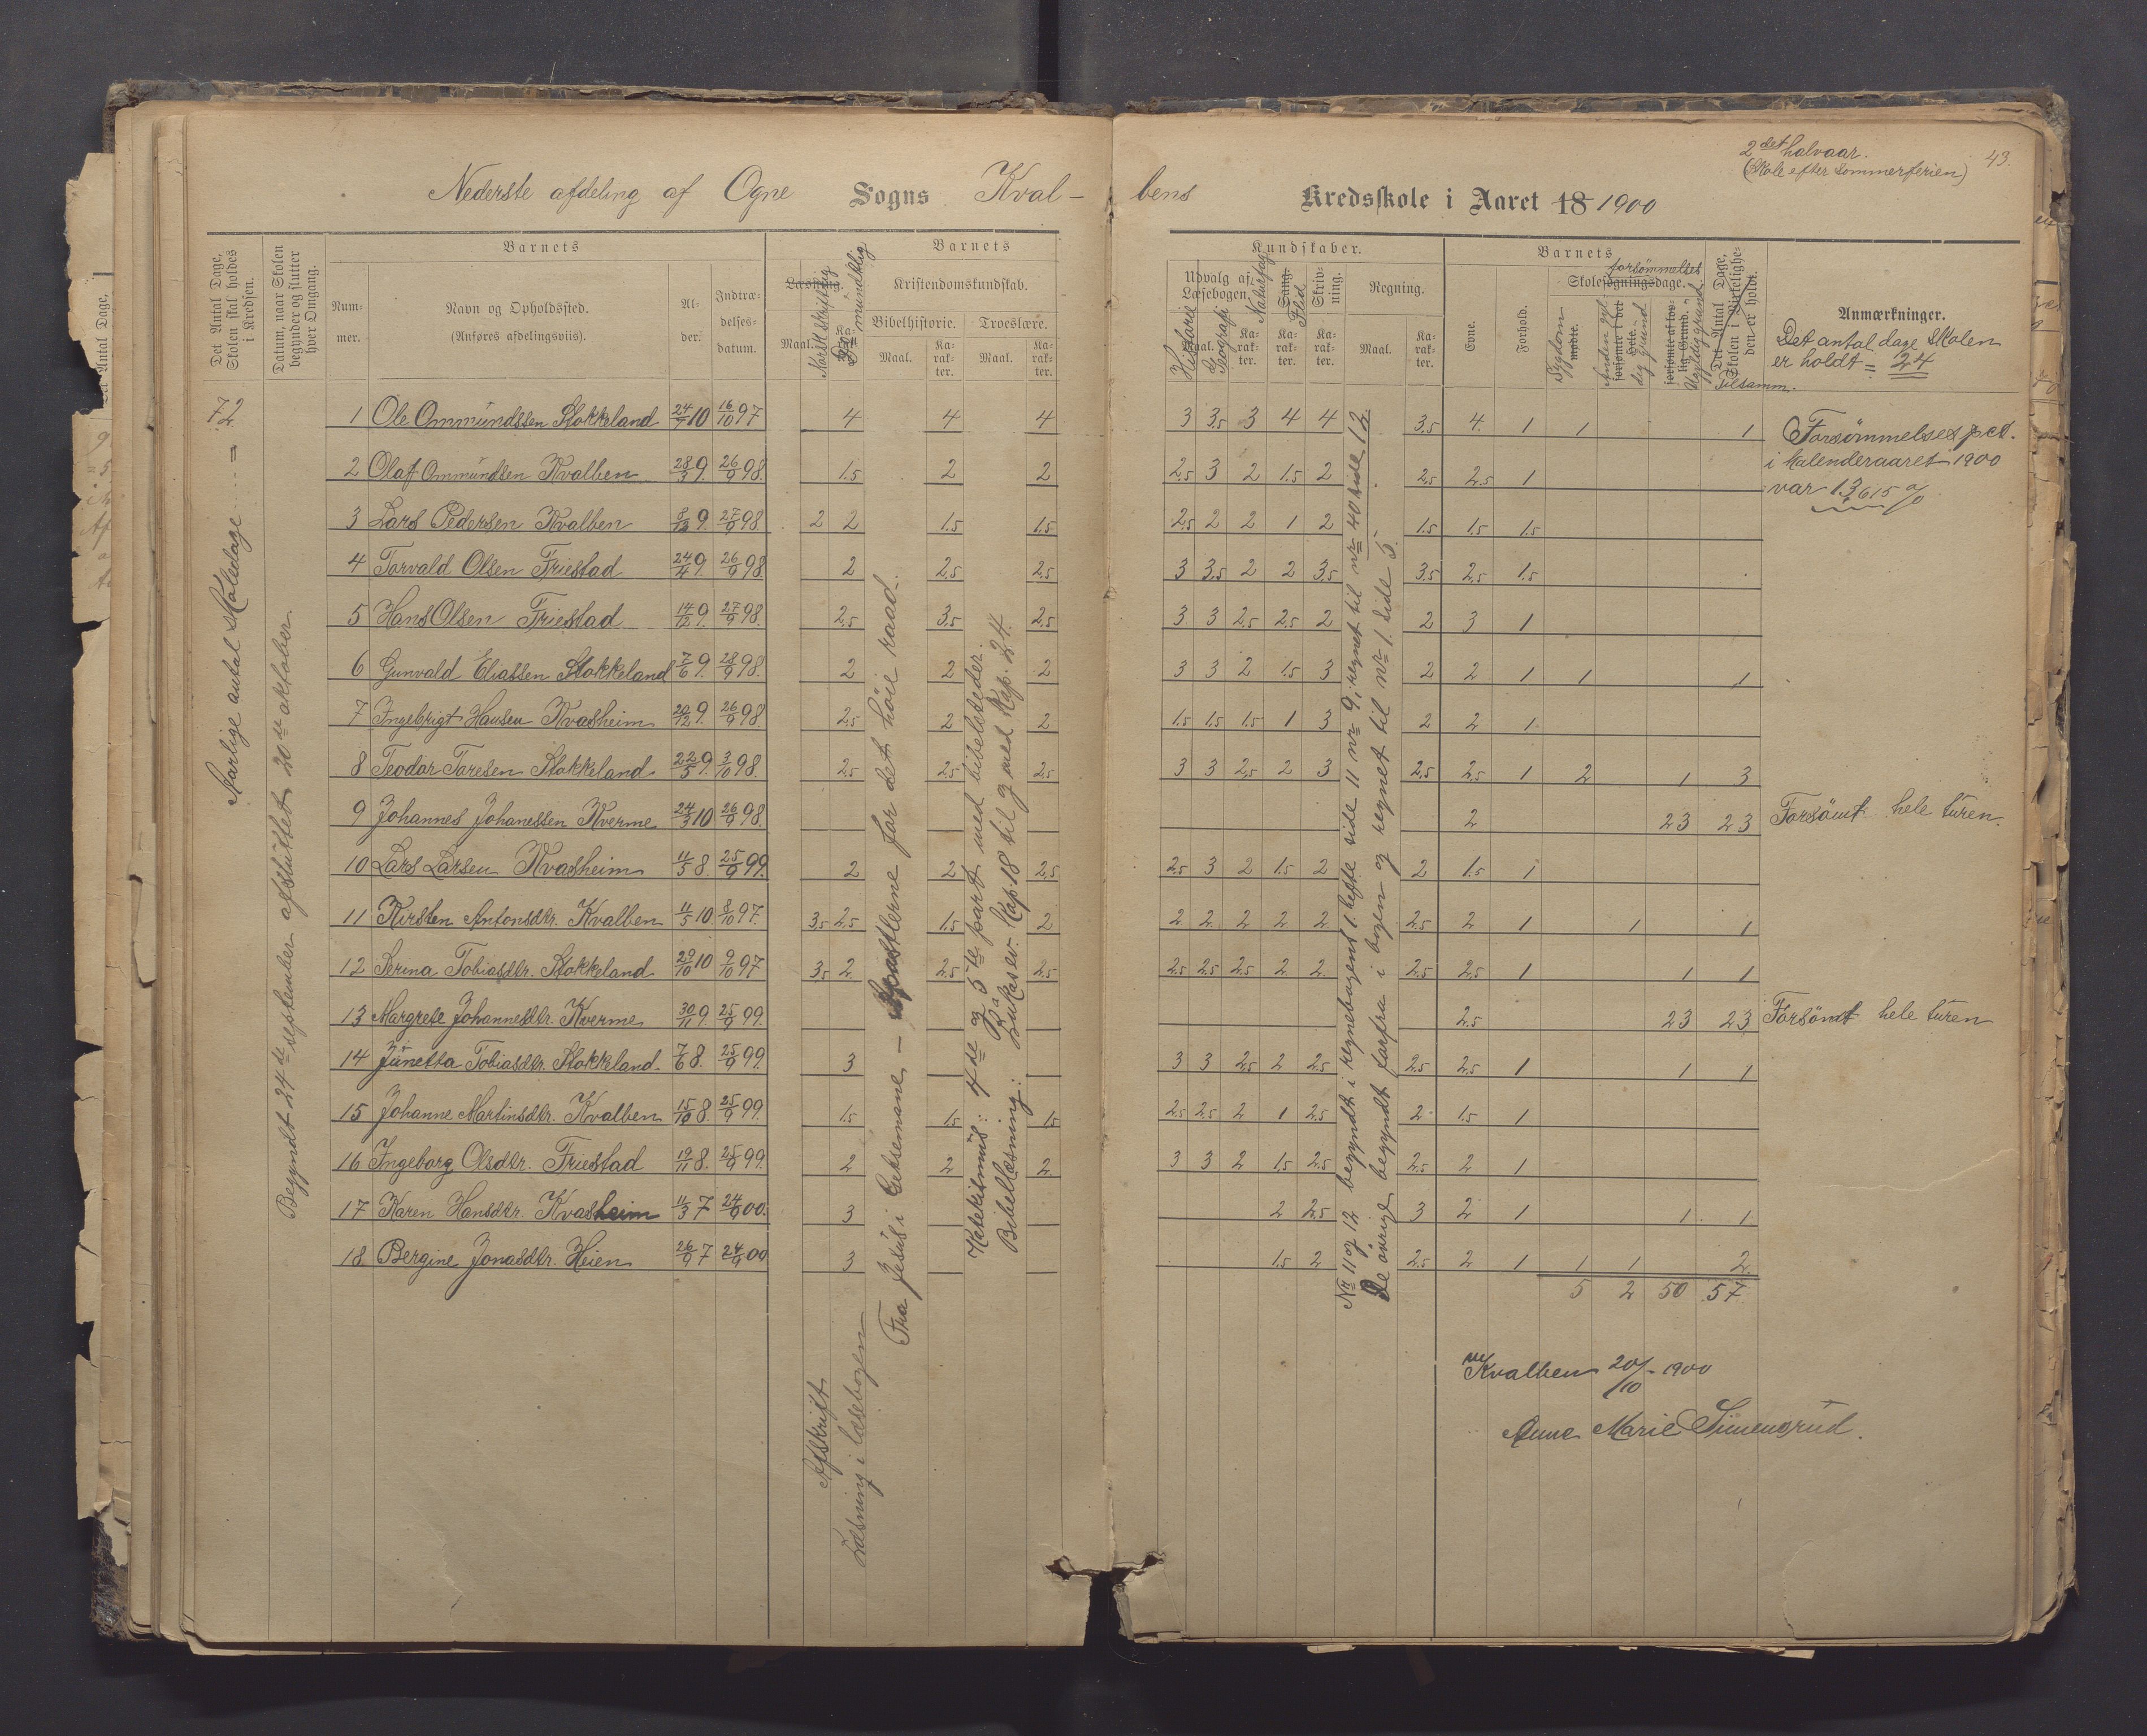 2det halvaar.
(Skole efter Sommerferien) 43.
Nederste afdeling af Ogne Sogns Kval-
bens Kredsskole i Aaret 18 1900
Det Antal Dage, Skolen skal holdes i Kredsen.
Datum, naar Skolen begynder og slutter hver Omgang.
Barnets
Num-
mer.
Navn og Opholdssted.
(Anføres afdelingsviis).
Al-
der.
Indtræ-
delses-
datum.
Barnets
Læsning.
Norsk skriftlig
Do mündtlig
Maal.
Kristendomskundskab.
Bibelhistorie. Troeslære.
Maal. Ka-rak-ter. Maal. Ka-rak-ter.
Kundskaber.
Udvalg af Læsebogen.
Historie
Geografi
Naturfag
Sang.
Flid
Skriv-
ning.
Regning.
Maal. Ka-rak-ter.
Barnets
Evne.
Forhold.
forsømmelses
Skolesøgningsdage.
Sygdom
mødte.
Anden gyl-
dig grund
forsømte i det Hele.
forsømte af lov-lig Grund.
Ugyldig grund.
Det Antal Dage, Skolen i Virkelighe-den er holdt.
Tilsamm.
Anmærkninger.
Det antal dage Skolen
er holdt = 24
72
1 Ole Ommundssen Stokkeland 24/7 10 16/10 97 4 4 4 3 3,5 3 4 4 3,5 4. 1 1 1
2 Olaf Ommundsen Kvalben 28/3 9. 26/9 98. 1.5 2 2 2,5 3 2 1.5 2 2,5 2.5 1
3 Lars Pedersen Kvalben 9. 27/9 98 2 2 1.5 1.5 2.5 2 2 1 2 1.5 1.5 1.5
4 Torvald Olsen Friestad 24/4 9. 26/9 98 2 2,5 2,5 3 3,5 2 2 3,5 3,5 2,5 1.5
5 Hans Olsen Friestad 14/12 9. 27/9 98. 2,5 3,5 2,5 3 3 2,5 2,5 2 2 3 1
6 Gunvald Eliassen Stokkeland 7/6 9. 28/9 98. 2 2 2 3 3 2 1.5 3 2 2 1 1 1
7 Ingebrigt Hansen Kvasheim 20/12 9. 26/9 98. 2,5 2 2 1.5 1.5 1.5 1 3 2 2 1
8 Teodor Toresen Stokkeland 22/5 9. 3/10 98. 2,5 2,5 2,5 3 3 2,5 2 3 2,5 2,5 1 2 1 3
9 Johannes Johanessen Kverme 24/3 10 26/9 98 2 23 23 Forsömt hele turen.
10 Lars Larsen Kvasheim 11/5 8. 25/9 99. 2 2 2,5 2,5 3 2 1.5 2 2 1.5 1
11 Kirsten Antonsdtr. Kvalben 11/5 10 8/10 97. 3,5 2,5 1.5 2 2 2 2 2 2 2.5 2 1 1 1
12 Serina Tobiasdtr. Stokkeland 29/10 10 9/10 97 3,5 2 2,5 2,5 2,5 2,5 2,5 2 2 2,5 2,5 1 1 1
13 Margrete Johannesdtr. Kverme 30/11 9. 25/9 99. 2.5 23 23 Forsömt hele turen
14 Junetta Tobiasdtr. Stokkeland. 7/6 8. 25/9 99. 3 3 3 2,5 2 2,5 2,5 2,5 1 1 1
15 Johanne Martinsdtr. Kvalben 15/10 8. 25/9 99. 1.5 1.5 1.5 2,5 2,5 2 1 2,5 2 1.5 1
16 Ingeborg Olsdtr. Friestad 19/11 8. 25/9 99. 2 2 2. 3 3 2 1.5 2,5 2,5 2 1
17 Karen Hansdtr. Kvasheim 11/3 7 24/9 00. 3 2 2,5 3 2 1 1 1
18 Bergine Jonasdtr. Heien 26/9 7 24/9 00 3 1.5 2 2.5 2 1 1 1 2.
5 2 50 57
Forsömmelses pct.
i Kalenderaaret 1900
var 13,615 %
Aarlige antal Skoledage
Begyndt 24de september afsluttet 20de oktober
Afskrift
Læsning i læsebogen
Fra Jesus i Getsemane – Apostlerne for det höie raad.
Katekismus: 4de og 5te part med bibelsteder.
Bibellæsning: Lukas ev. Kap. 18 til og med Kap. 24.
No 11 og 12 begyndt i regnebogens 1. hefte side 11 nr 9, regnet til nr 40 side 12.
De övrige begyndt forfra i bogen og regnet til nr 1. side 5.
Kvalben 20/10 - 1900
Anne Marie Simensrud.